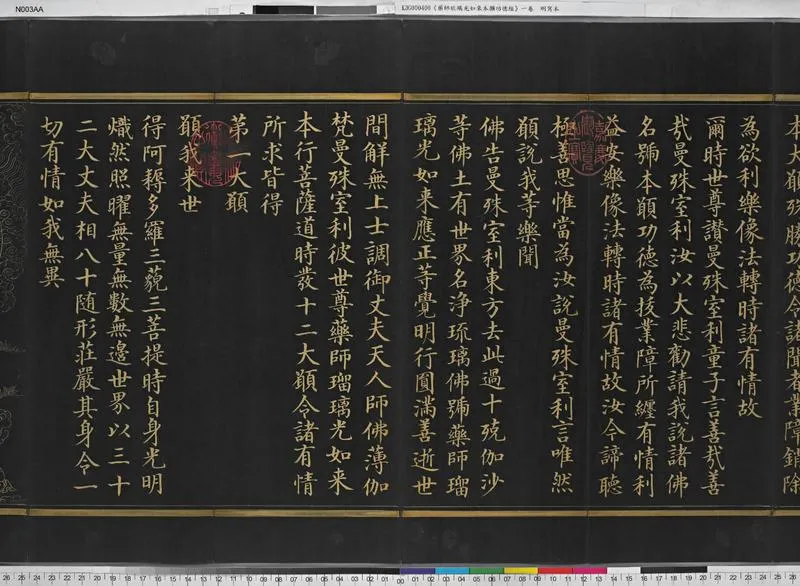 N003AA
本大願殊勝功德令諸聞者業障銷除
為欲利樂像法轉時諸有情故
爾時世尊讚曼殊室利童子言善哉善
哉曼殊室利汝以大悲勸請我說諸佛
名號本願功德為拔業障所纏有情利
益安樂像法轉時諸有情故汝今諦聽
極善思惟當為汝說曼殊室利言唯然
願說我等樂聞
佛告曼殊室利東方去此過十殑伽沙
等佛土有世界名淨琉璃佛號藥師瑠
璃光如來應正等覺明行圓滿善逝世
間解無上士調御丈夫天人師佛薄伽
梵曼殊室利彼世尊藥師瑠璃光如來
本行菩薩道時發十二大願令諸有情
所求皆得
第一大願
願我來世
得阿耨多羅三藐三菩提時自身光明
熾然照曜無量無數無邊世界以三十
二大丈夫相八十随形莊嚴其身令一
切有情如我無異